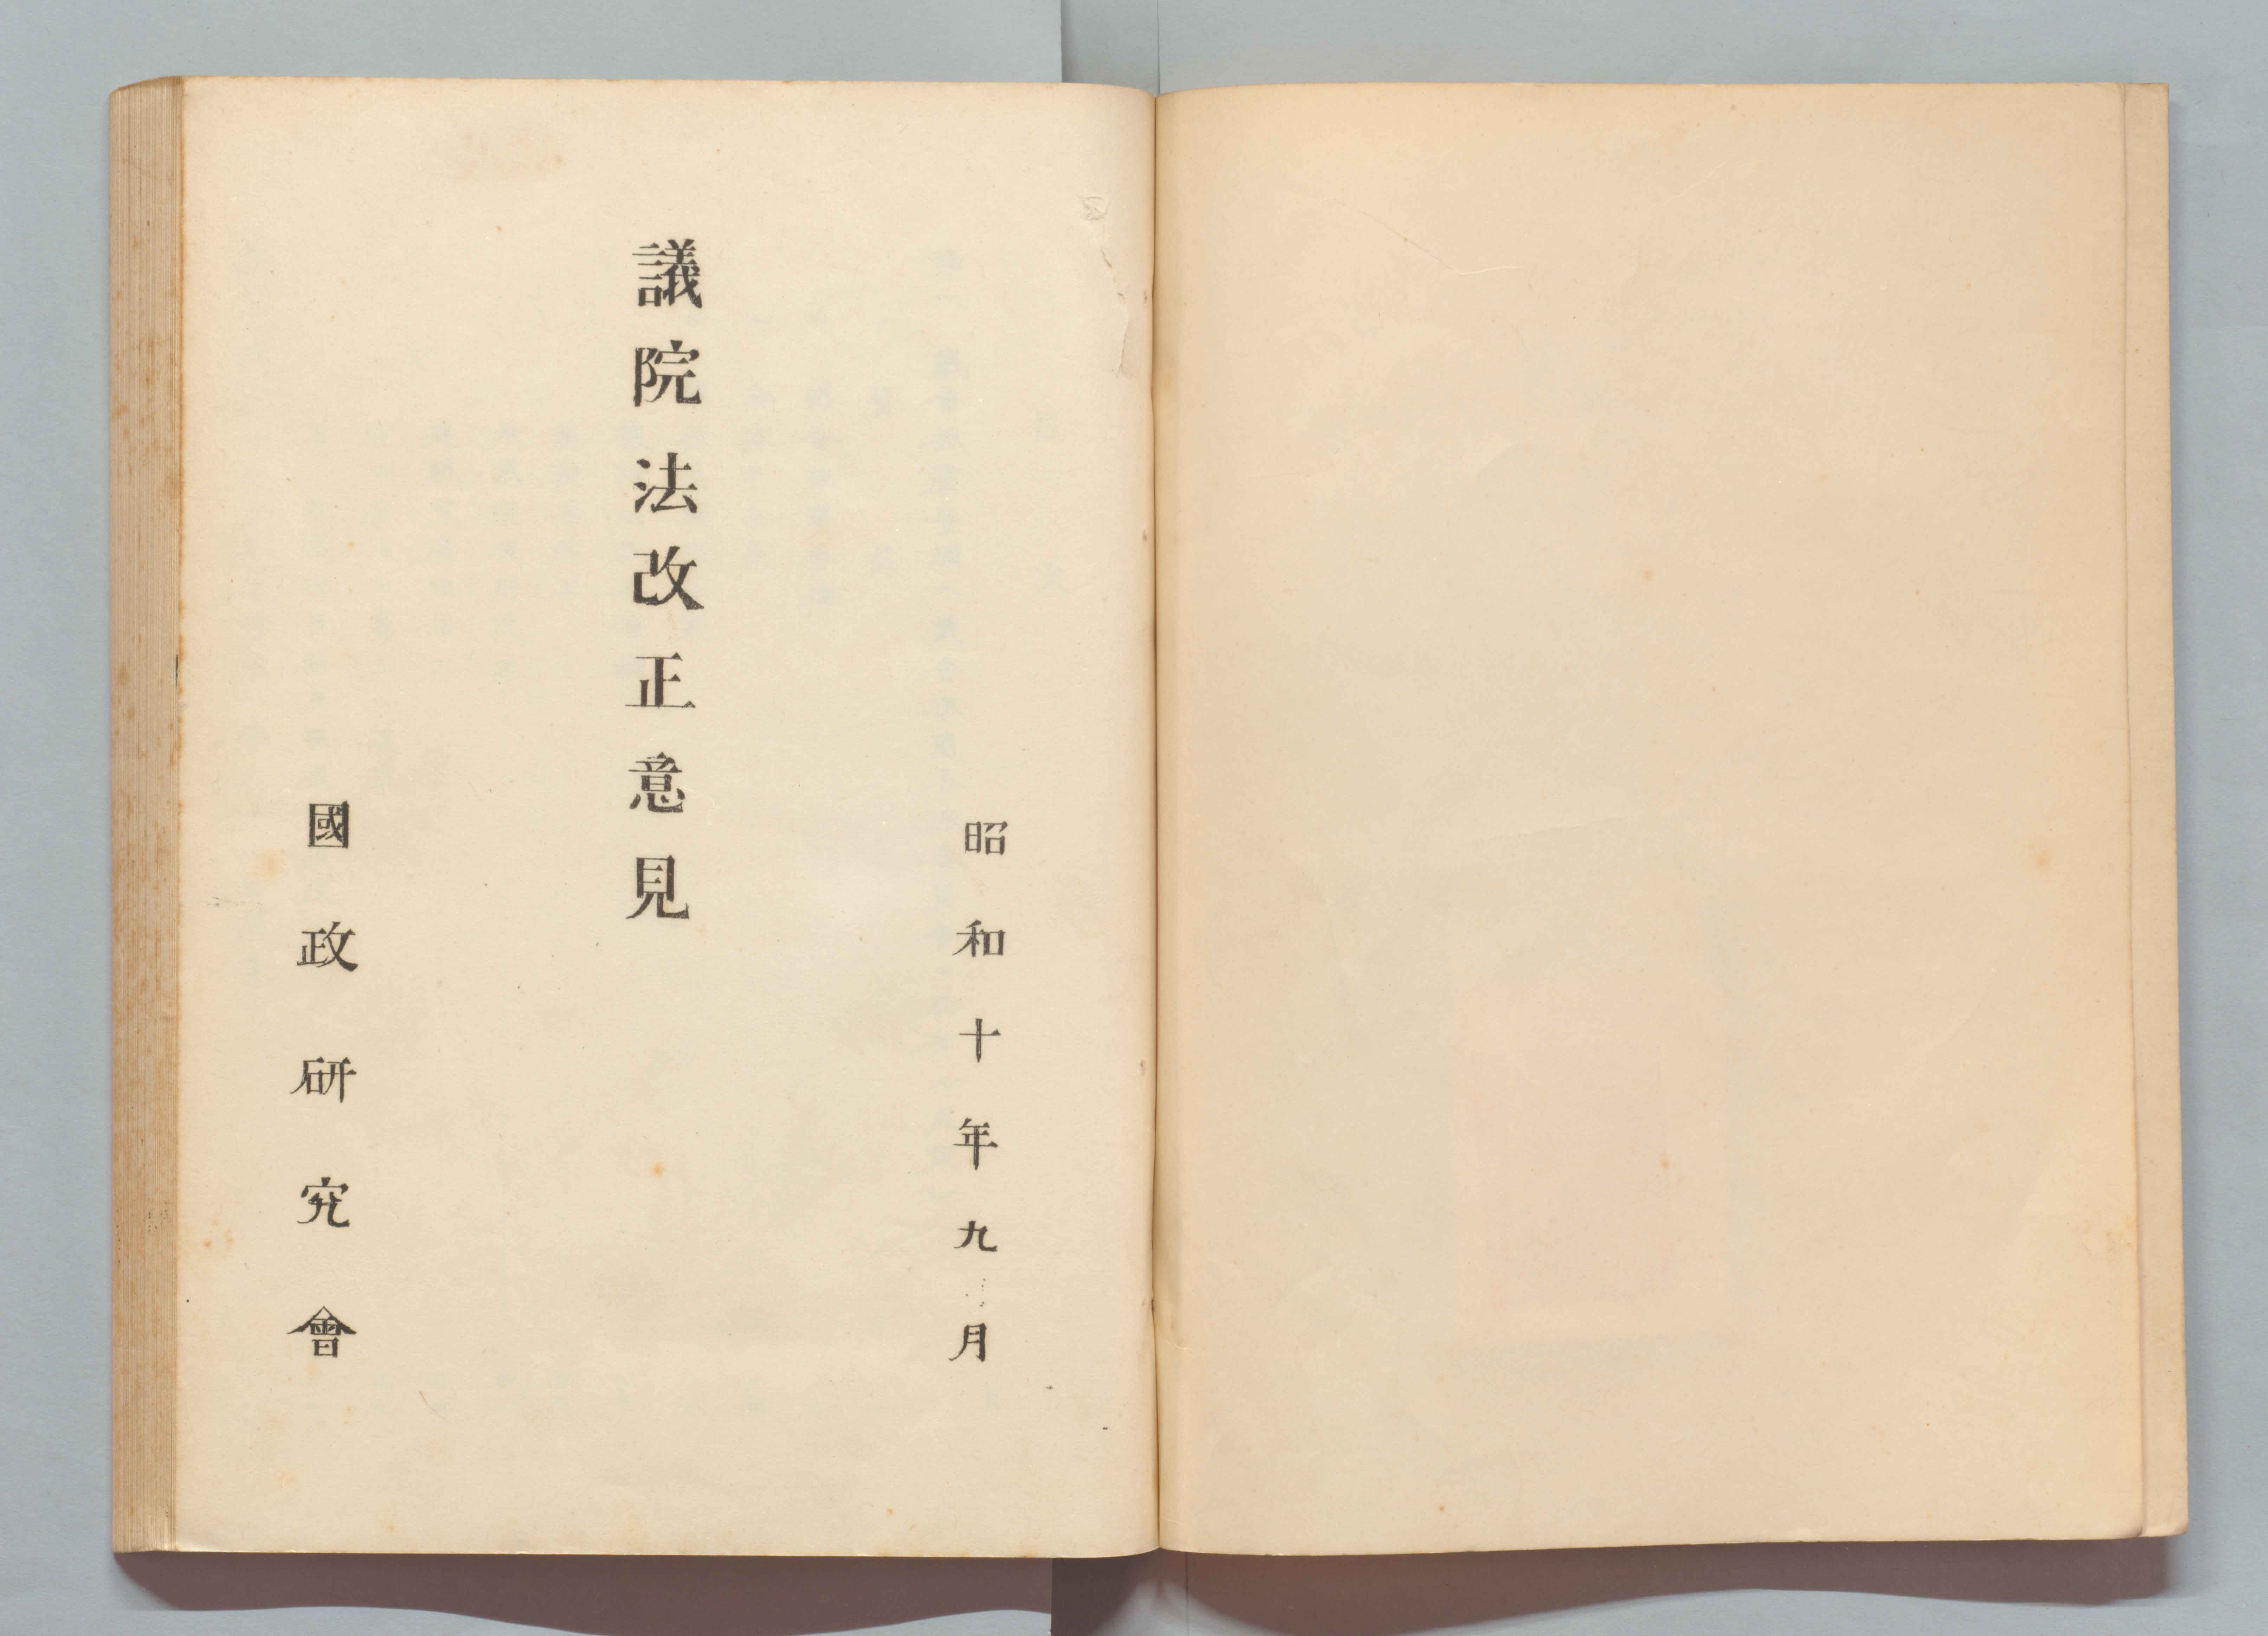 昭和十年九月
議院法改正意見
國政研究會